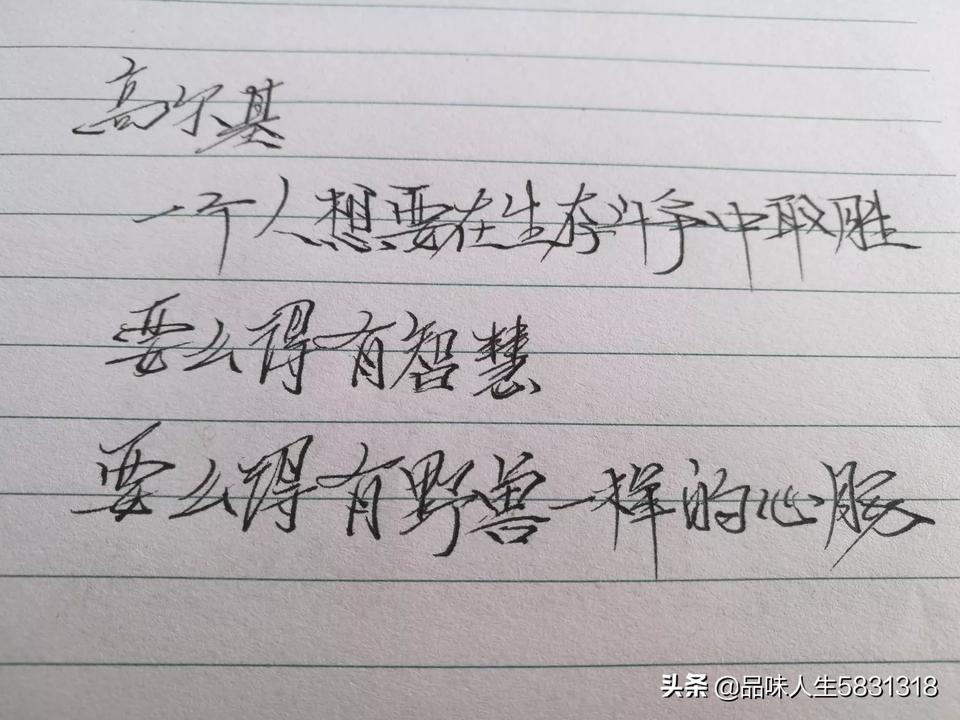 高尔基
一个人想要在生存斗争中取胜
要么得有智慧
要么得有野兽一样的心肠
头条 @品味人生5831318